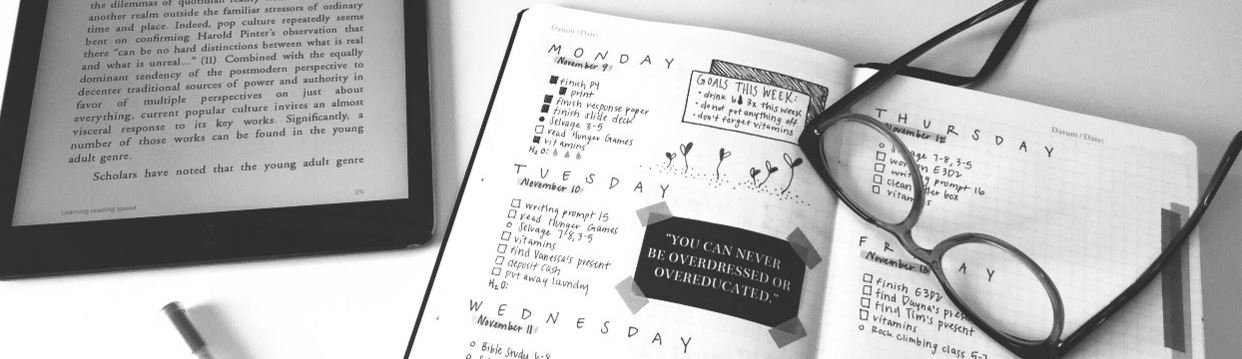 the dilemmas of quotidian reality
another realm outside the familiar stressors of ordinary
time and place. Indeed, pop culture repeatedly seems
bent on confirming Harold Pinter's observation that
there "can be no hard distinctions between what is real
and what is unreal..." (11). Combined with the equally
dominant tendency of the postmodern perspective to
decenter traditional sources of power and authority in
favor of multiple perspectives on just about
everything, current popular culture invites an almost
visceral response to its key works. Significantly, a
number of those works can be found in the young
adult genre.
Scholars have noted that the young adult genre
Learning reading speed
2%
Datum / Date:
MONDAY
November 9
finish P4
print
finish response paper
finish slide deck
Selvage 3-5
read Hunger Games
vitamins
H₂O:
GOALS THIS WEEK:
• drink 3x this week
• do not put anything off
• don't forget vitamins
TUESDAY
November 10
writing prompt 15
read Hunger Games
Selvage 7-8, 3-5
vitamins
find Vanessa's present
deposit cash
put away laundry
H₂O:
"YOU CAN NEVER
BE OVERDRESSED OR
OVEREDUCATED."
WEDNESDAY
November 11
Bible Study 6-8
Datum / Date:
THURSDAY
November 12
Selvage 7-8, 3-5
work on E3D2
writing prompt 16
clean litter box
vitamins
FRIDAY
November 13
finish E3D2
find Dayna's present
find Tim's present
vitamins
Rock climbing class 5-7